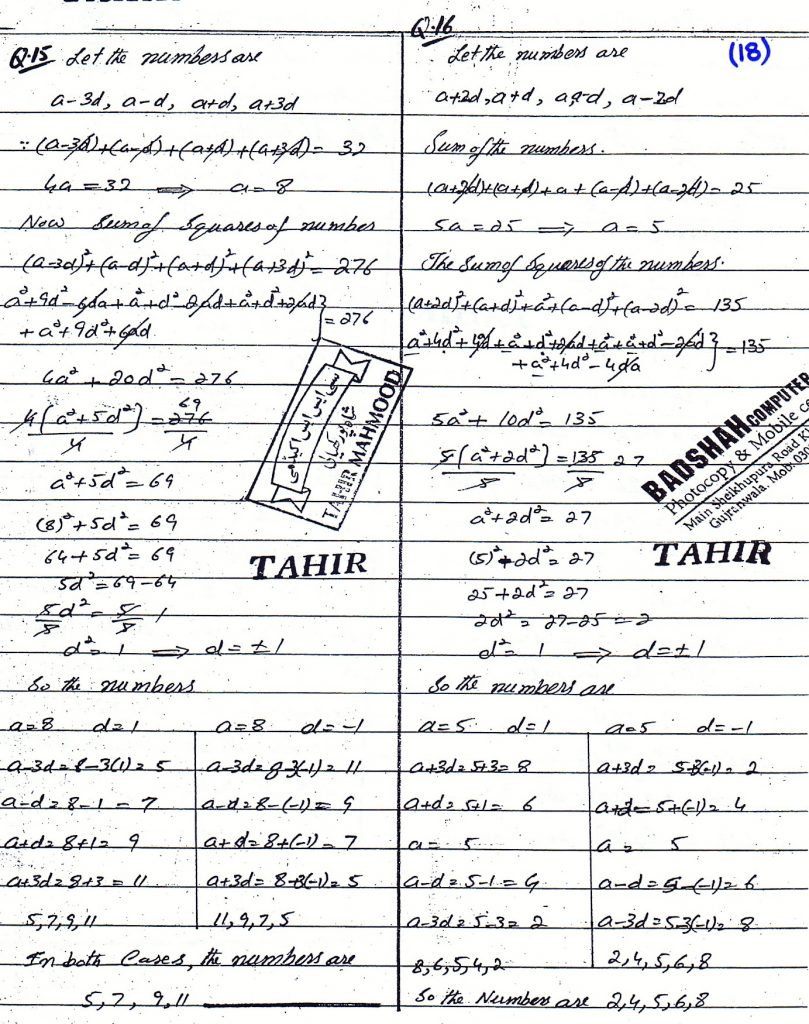 Q.15 Let the numbers are
a-3d, a-d, a+d, a+3d
∵ (a-3d)+(a-d)+(a+d)+(a+3d) = 32
4a = 32 ⟹ a = 8
Now Sum of Squares of number
(a-3d)²+(a-d)²+(a+d)²+(a+3d)² = 276
a²+9d²-6da+a²+d²-2ad+a²+d²+2ad
+a²+9d²+6ad } = 276
4a² + 20d² = 276
4(a²+5d²)/4 = 276/4 69
a²+5d² = 69
(8)²+5d² = 69
64+5d² = 69
5d² = 69-64
5d²/5 = 5/5 1
d² = 1 ⟹ d = ±1
So the numbers
a=8 d=1
a-3d = 8-3(1) = 5
a-d = 8-1 = 7
a+d = 8+1 = 9
a+3d = 8+3 = 11
5,7,9,11
a=8 d=-1
a-3d = 8-3(-1) = 11
a-d = 8-(-1) = 9
a+d = 8+(-1) = 7
a+3d = 8+3(-1) = 5
11,9,7,5
In both Cases, the numbers are
5,7, 9,11
سی ایس ایس اکیڈمی
TAHIR MAHMOOD
TAHIR
Q.16
(18)
Let the numbers are
a+2d, a+d, a, a-d, a-2d
Sum of the numbers.
(a+2d)+(a+d)+a+(a-d)+(a-2d) = 25
5a = 25 ⟹ a = 5
The Sum of Squares of the numbers.
(a+2d)²+(a+d)²+a²+(a-d)²+(a-2d)² = 135
a²+4d²+4ad+a²+d²+2ad+a²+a²+d²-2ad
+a²+4d²-4da } = 135
5a² + 10d² = 135
5(a²+2d²)/5 = 135/5 27
a²+2d² = 27
(5)²+2d² = 27
25+2d² = 27
2d² = 27-25 = 2
d² = 1 ⟹ d = ±1
So the numbers are
a=5 d=1
a+3d = 5+3 = 8
a+d = 5+1 = 6
a = 5
a-d = 5-1 = 4
a-3d = 5-3 = 2
8,6,5,4,2
a=5 d=-1
a+3d = 5+3(-1) = 2
a+d = 5+(-1) = 4
a = 5
a-d = 5-(-1) = 6
a-3d = 5-3(-1) = 8
2,4,5,6,8
So the Numbers are 2,4,5,6,8
BADSHAH COMPUTER
Photocopy & Mobile
Main Sheikhupura Road
Gujranwala. Mob:
TAHIR